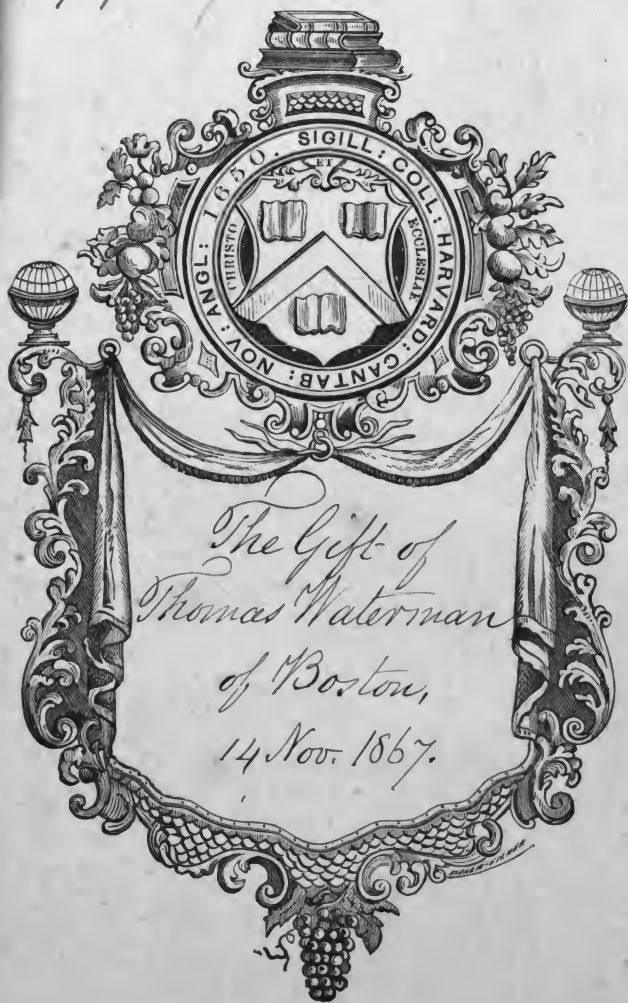 SIGILL: COLL: HARVARD: CANTAB: NOV: ANGL: 1650.
ET
CHRISTO
ECCLESIAE
The Gift of
Thomas Waterman
of Boston,
14 Nov. 1867.